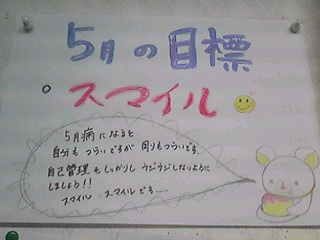 5月の目標
スマイル
5月病になると
自分もつらいですが 周りもつらいです。
自己管理もしっかりし ウジウジしないように
しましょう!!
スマイル スマイルです……